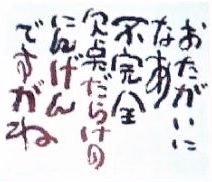 おたがいに
なあ
不完全
欠点だらけの
にんげん
ですがね